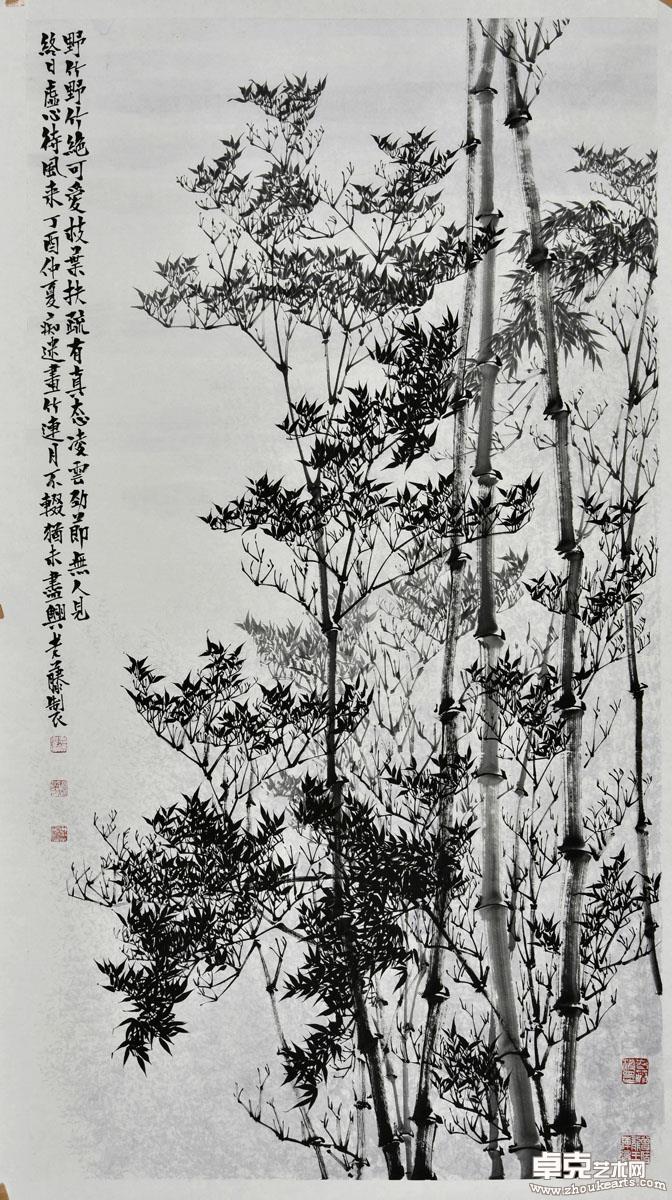 野竹野竹絶可愛枝葉扶疏有真态凌雲勁節無人見
終日虚心待風来丁酉仲夏痴迷畫竹連月不輟猶未盡興老藤製
卓克艺术网
www.zhoukearts.com